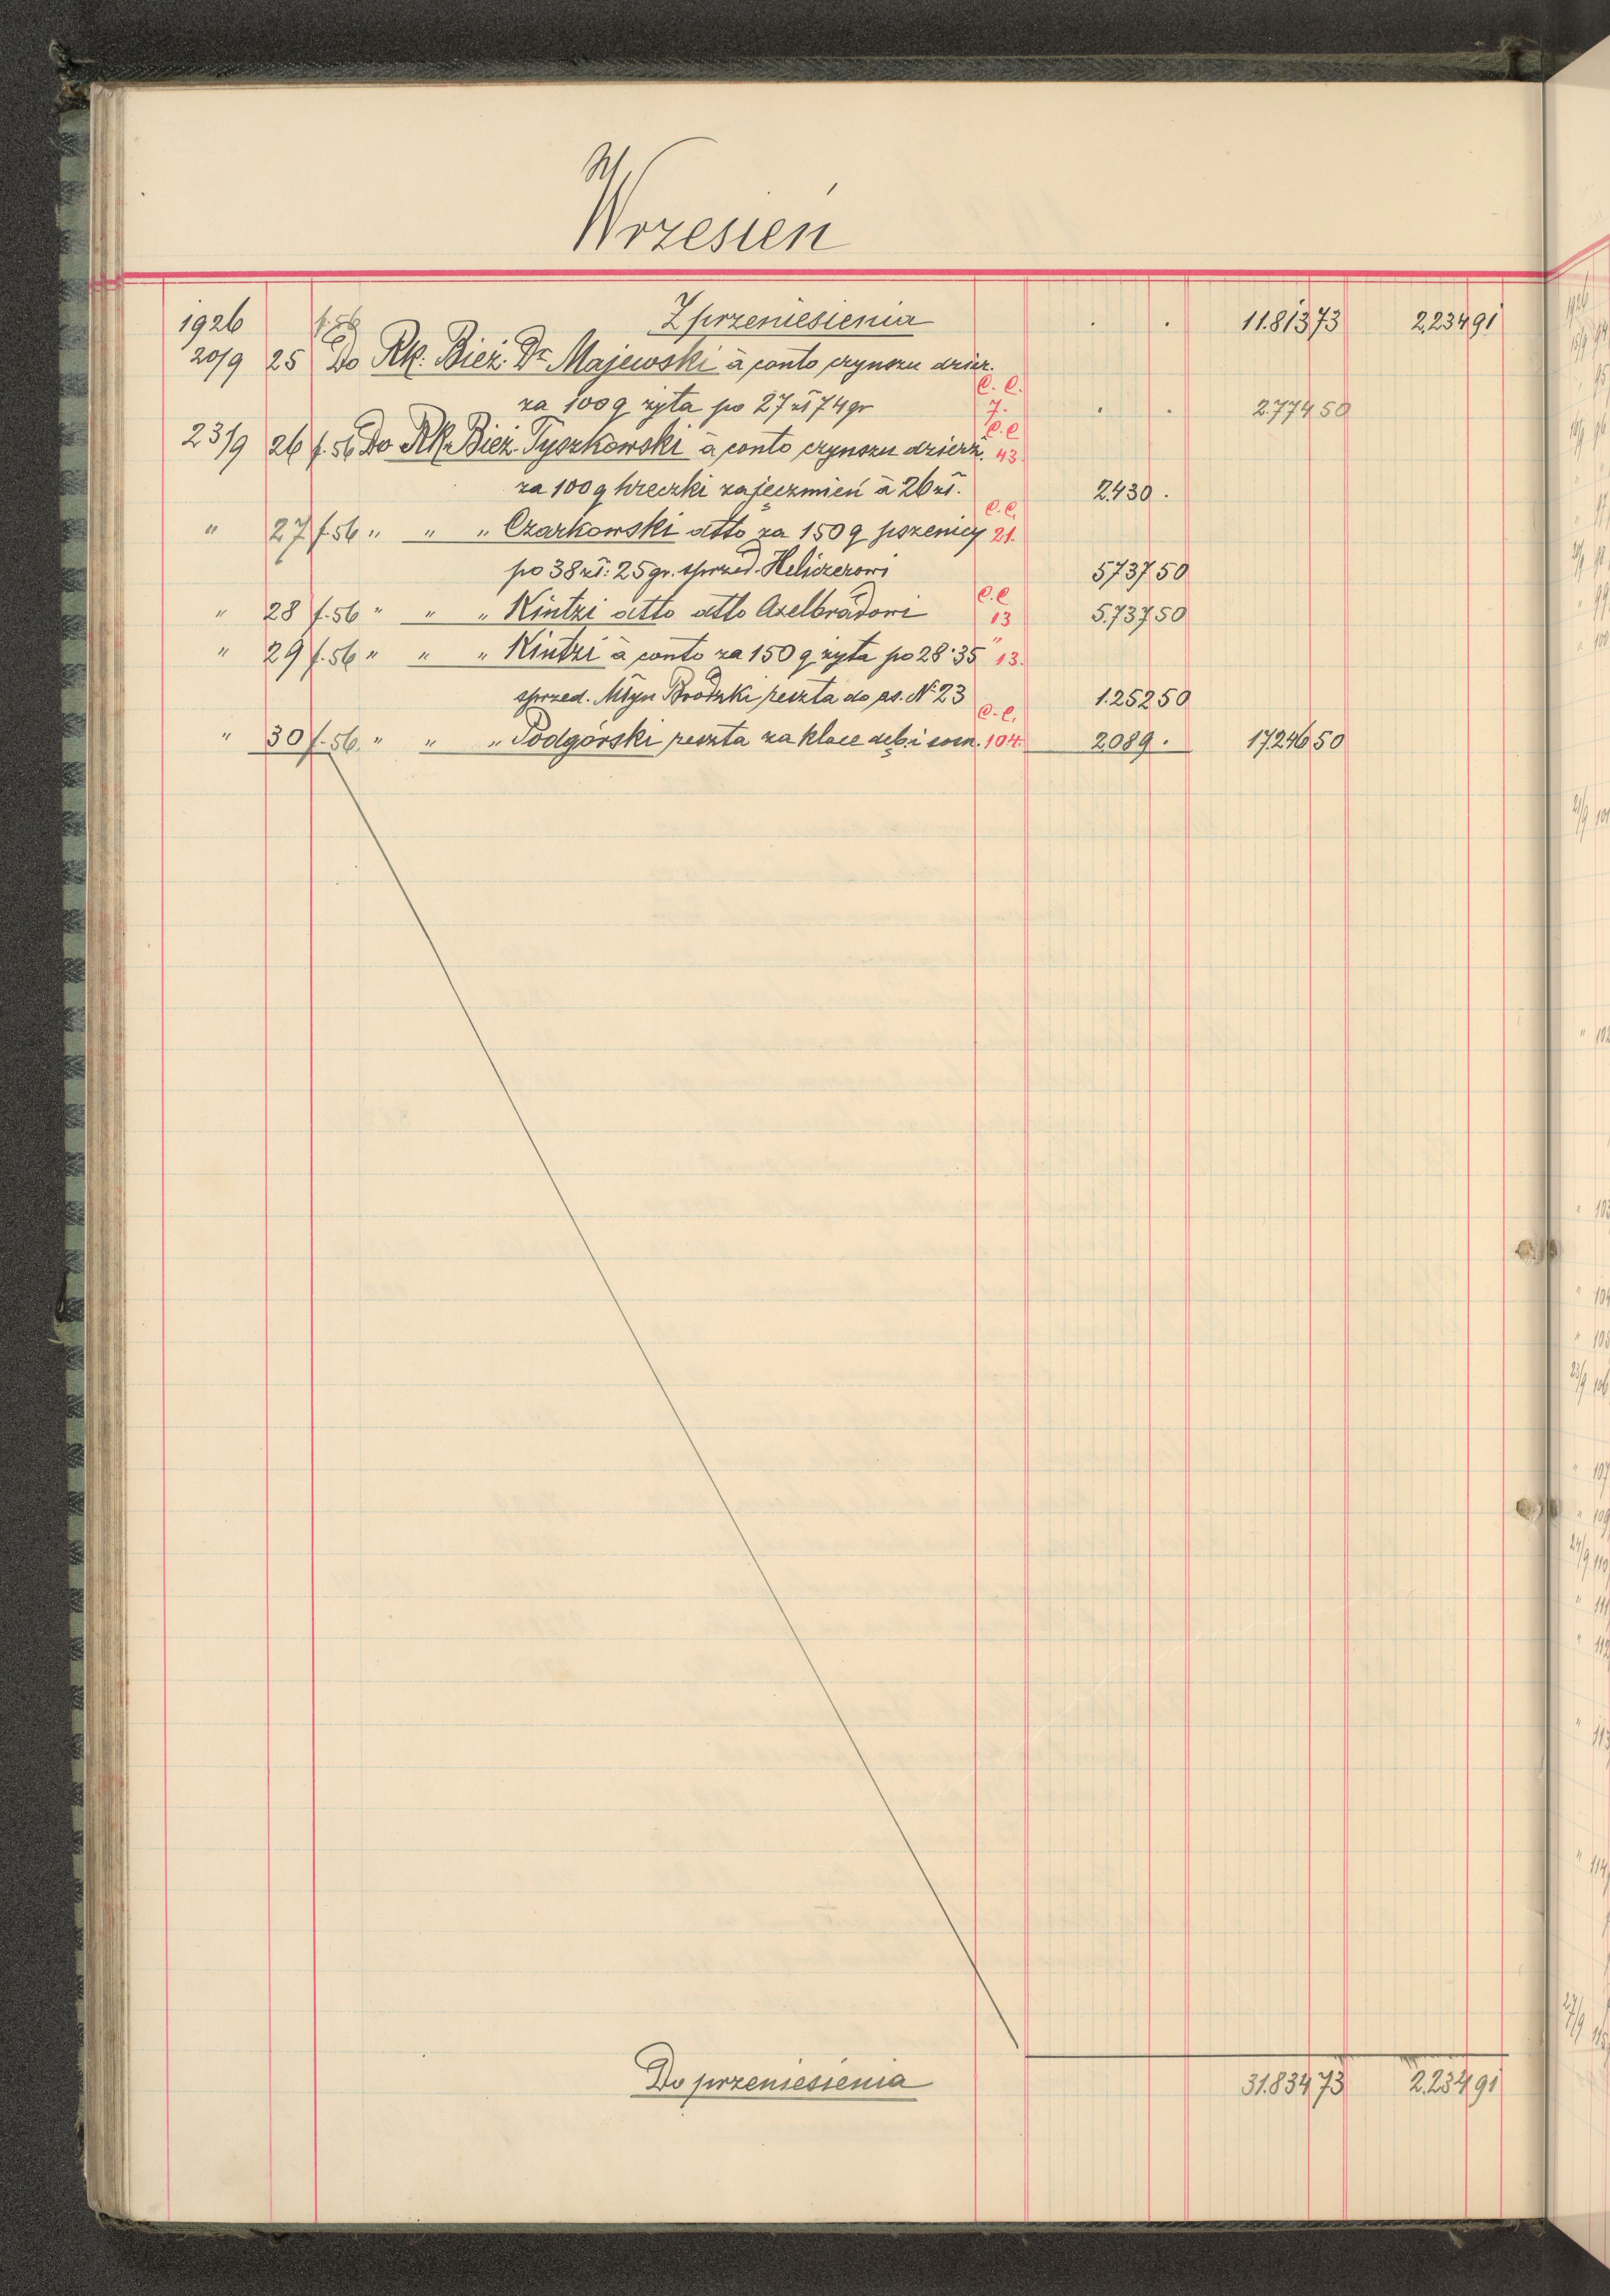 W
Wrzesień
1926 f. 56 Z przeniesienia . . 11.813 73 2.234 91
20/9 25 Do Rk. Bież. Dr. Majewski à conto czynszu dzier.
za 100 q żyta po 27 zł 74 gr C. C. 7. . . 2.774 50
23/9 26 f. 56 Do Rk. Bież. Tyszkowski à conto czynszu dzierż. C. C 43
za 100 q hreczki za jęczmień à 26 zł. 2.430 .
" 27 f. 56 " " " Czarkowski dtto za 150 q pszenicy C. C. 21.
po 38 zł: 25 gr. sprzed. Heliczerowi 5737 50
" 28 f. 56 " " " Kintzi dtto dtto Axelbradowi C. C 13 5.737 50
" 29 f. 56 " " " Kintzi à conto za 150 q żyta po 28·35 " 13.
sprzed. Młyn Brodzki reszta do as. № 23 1.252 50
" 30 f. 56. " " " Podgórski reszta za kloce dęb. i sosn. C. C. 104. 2089 . 17.246 50
Do przeniesienia 31.834 73 2.234 91